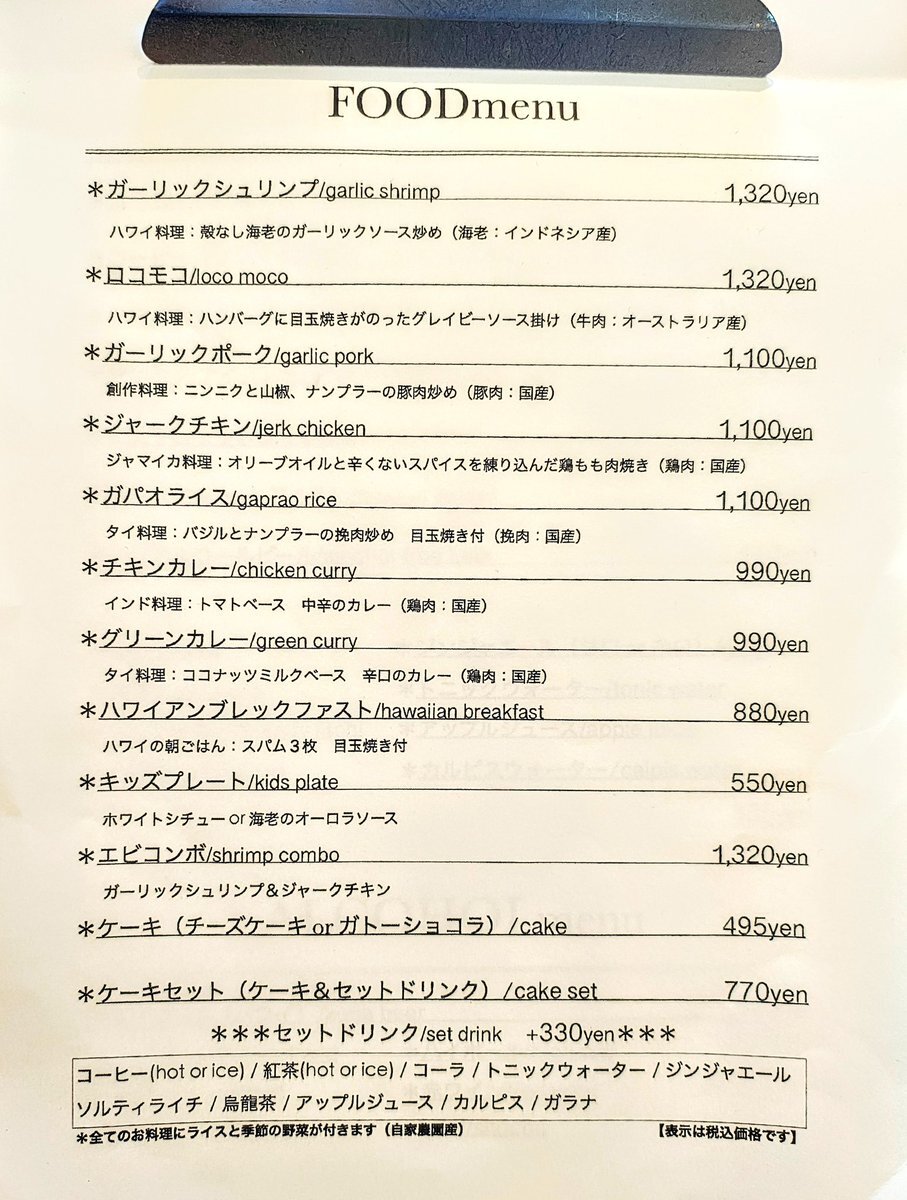 FOODmenu
＊ガーリックシュリンプ/garlic shrimp 1,320yen
ハワイ料理：殻なし海老のガーリックソース炒め（海老：インドネシア産）
＊ロコモコ/loco moco 1,320yen
ハワイ料理：ハンバーグに目玉焼きがのったグレイビーソース掛け（牛肉：オーストラリア産）
＊ガーリックポーク/garlic pork 1,100yen
創作料理：ニンニクと山椒、ナンプラーの豚肉炒め（豚肉：国産）
＊ジャークチキン/jerk chicken 1,100yen
ジャマイカ料理：オリーブオイルと辛くないスパイスを練り込んだ鶏もも肉焼き（鶏肉：国産）
＊ガパオライス/gaprao rice 1,100yen
タイ料理：バジルとナンプラーの挽肉炒め　目玉焼き付（挽肉：国産）
＊チキンカレー/chicken curry 990yen
インド料理：トマトベース　中辛のカレー（鶏肉：国産）
＊グリーンカレー/green curry 990yen
タイ料理：ココナッツミルクベース　辛口のカレー（鶏肉：国産）
＊ハワイアンブレックファスト/hawaiian breakfast 880yen
ハワイの朝ごはん：スパム３枚　目玉焼き付
＊キッズプレート/kids plate 550yen
ホワイトシチュー or 海老のオーロラソース
＊エビコンボ/shrimp combo 1,320yen
ガーリックシュリンプ＆ジャークチキン
＊ケーキ（チーズケーキ or ガトーショコラ）/cake 495yen
＊ケーキセット（ケーキ＆セットドリンク）/cake set 770yen
＊＊＊セットドリンク/set drink　+330yen＊＊＊
コーヒー(hot or ice) / 紅茶(hot or ice) / コーラ / トニックウォーター / ジンジャエール
ソルティライチ / 烏龍茶 / アップルジュース / カルピス / ガラナ
＊全てのお料理にライスと季節の野菜が付きます（自家農園産） 【表示は税込価格です】